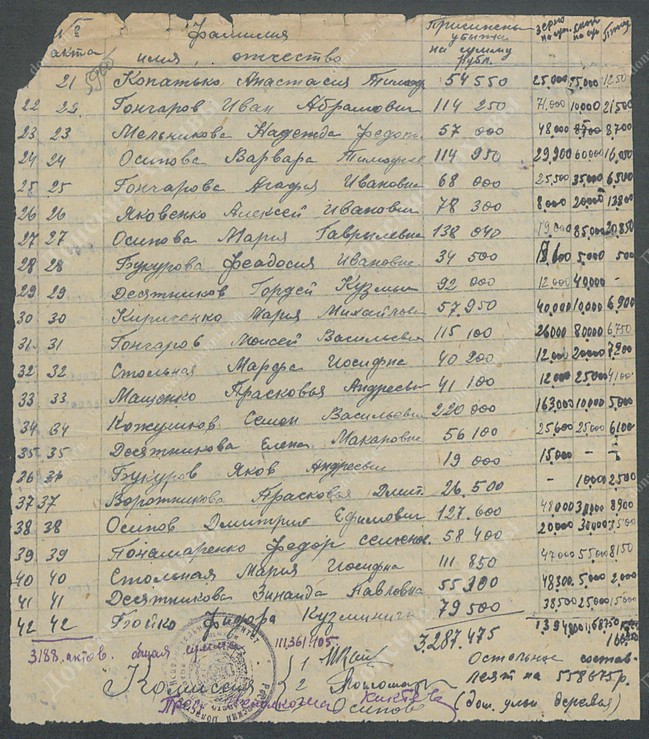 № акта фамилия имя, отчество Причинены убытки на сумму рубл. зерно скот птиц
21 Копатько Анастасия Тимоф 54 550 25.000 25.000 1250
22 22. Гонгаров Иван Абрамович 114 250 71,000 10000 21,500
23 23 Мельникова Надежда Федот 57 000 48000 8700 8,700
24 24 Осипова Варвара Тимофее 114 950 29,900 60000
25 25 Гонгарова Агафия Ивановн 68 000 25,500 35000 6,500
26 26 Яковенко Алексей Иванович 78 300 8,000 20000
27 27 Осипова Мария Гаврылевн 138 040 19,000 85000 20,850
28 28 Букурова Феадосия Ивановне 34 500 5,000 500
29 29 Десятников Гордей Кузмич 92 000 12,000 40,000 -
30 30 Кириченко Мария Михайлов 57,950 40,000 10,000 6,900
31. 31 Гонгаров Моисей Васильеви 115 100 26000 80000 6,750
32 32 Стольная Марфа Иосифне 40 200 12,000 20000 7,200
33 33 Мащенко Прасковья Андреевн 41 100 12,000 25000 4100
34 34 Кожушков Семен Васильеви 220 000 163000 10,000 5,000
35 35 Десятникова Елена Макаповне 56 100 25,600 25,000 6100
36 Букуров Яков Андреевич 19 000 15,000 - -
37 37 Ворожникова Прасковья Дмит 26.500 - 1000 2500
38 38 Осипов Дмитрие Ефимович 127.600 48000 8900
39 39 Понамаренко Федор семенов. 58 400 20,000 30000 7,500
40 40 Стольная Мария Иосифне 111 850 47,000 55,000 8150
41 41 Десятникова Зинаида Павловна 55 300 48,500 5,000 2,000
42 42 Бойко Кузминичн 79 500 38500 25000 15000
3188. актов. общая сумма 111,361,105 3,287.475
Остольные состав-
Комиссия 1 2 ляет на 558675р.
Осипов (дом. улой деревья)